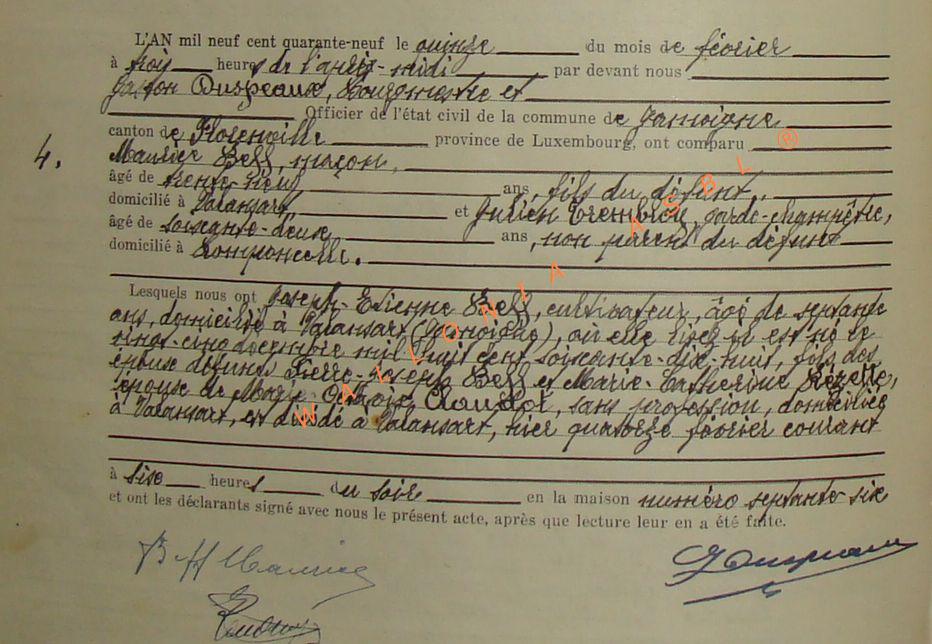 L'AN mil neuf cent quarante-neuf le quinze du mois de février
à trois heures de l'après-midi par devant nous
Gaston Duspeaux, Bourgmestre et
Officier de l'état civil de la commune de Jamoigne
canton de Florenville province de Luxembourg, ont comparu
4.
Maurice, maçon,
âgé de trente-neuf ans, fils du défunt,
domicilié à Valansart, et Julien, garde-champêtre,
âgé de soixante-deux ans, non parent du défunt
domicilié à Romponcelle.
Lesquels nous ont Joseph-Etienne, cultivateur, âgé de septante
ans, domicilié à Valansart (Jamoigne), où elle lisez il est né le
vingt-cinq décembre mil huit cent soixante-dix-huit, fils des
époux défunts Pierre-Joseph et Marie-Catherine Lézette,
époux de Marie, sans profession, domiciliée
à Valansart, est décédé à Valansart, hier quatorze février courant
à six heures du soir en la maison numéro septante-six
et ont les déclarants signé avec nous le présent acte, après que lecture leur en a été faite.
Maurice
WALLONIA ASBL ®